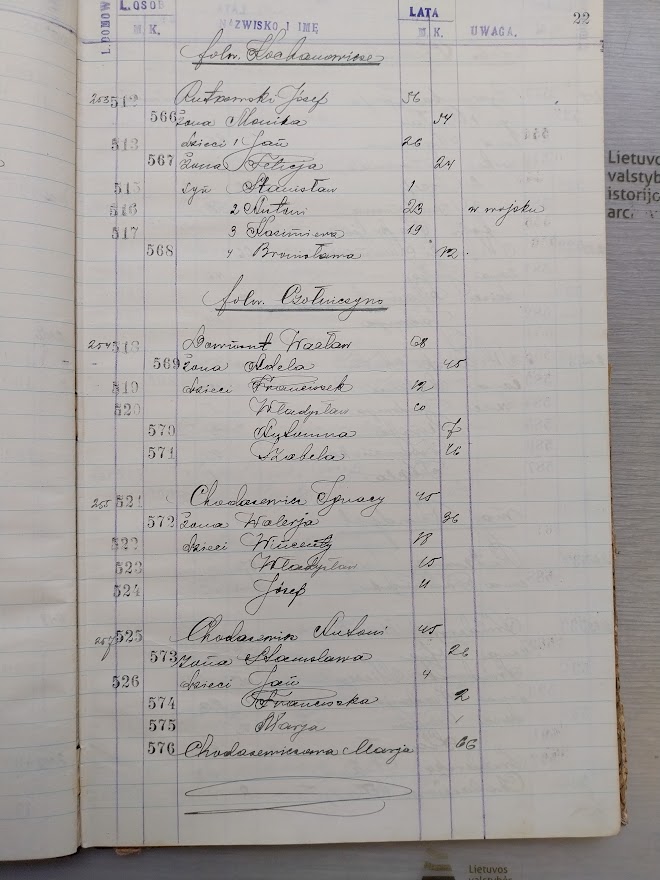 L. DOMÓW L. OSÓB LATA 22
M. K. NAZWISKO I IMĘ M. K. UWAGA.
folw.
253 512 Józef 56
566 żona Monika 54
513 dzieci 1 Jan 26
567 żona Felicja 24
515 syn Stanisław 1
516 2 Antoni 23 w wojsku
517 3 Kazimiera 19
568 4 Bronisława 12
folw.
254 518 Wacław 68
569 żona Adela 45
519 dzieci Franciszek 12
520 Władysław
570 7
571 Izabela 16
255 521 Chodasewicz Ignacy 45
572 żona Walerja 36
522 dzieci Wincenty 18
523 Władysław 15
524 Józef 11
257 525 Chodasewicz Antoni 45
573 żona Stanisława 26
526 dzieci Jan 4
574 Franciszka 2
575 Marja
576 Chodasewiczowa Marja 66
Lietuvo
valstyb
istorijo
arc
Lietuvos
valstybės